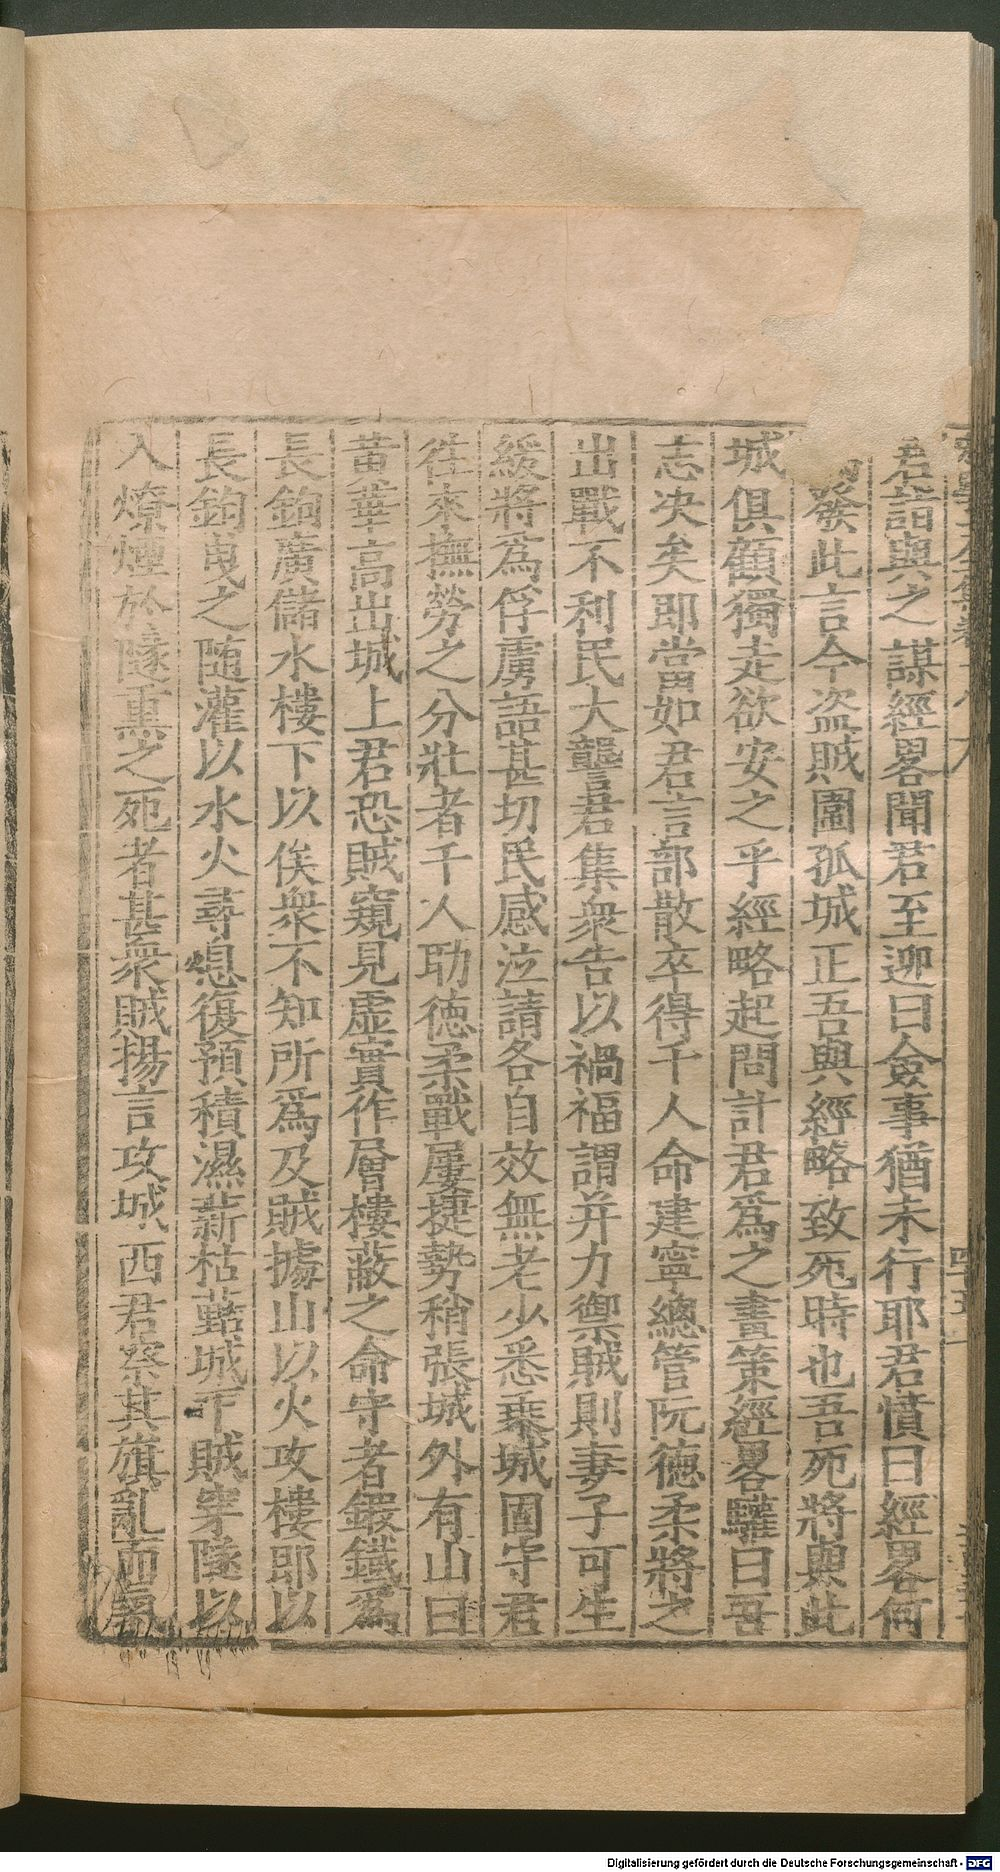 君詣與之謀經畧聞君至迎曰僉事猶未行耶君憤曰經畧何
發此言今盗賊圍孤城正吾與經略致死時也吾死將與此
城俱顧獨走欲安之乎經略起問計君爲之畫策經畧驩曰吾
志决矣即當如君言部散卒得千人命建寧總管阮德柔將之
出戰不利民大讋君集衆告以禍福謂并力禦賊則妻子可生
緩將爲俘虜語甚切民感泣請各自效無老少悉乗城固守君
徃來撫勞之分壯者千人助德柔戰屢捷勢稍張城外有山曰
黄華高出城上君恐賊窺見虛實作層樓蔽之命守者鍛鐵爲
長鉤廣儲水樓下以俟衆不知所爲及賊據山以火攻樓耶以
長鉤曳之随灌以水火尋息復預積濕薪枯蓺城下賊穿隧以
入燎煙於隧熏之死者甚衆賊揚言攻城西君察其旗亂而氣